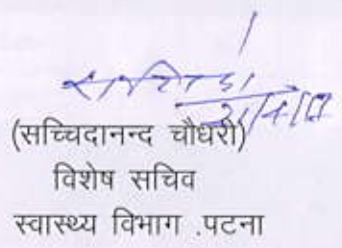 (सच्चिदानन्द चौधरी)
विशेष सचिव
स्वास्थ्य विभाग .पटना